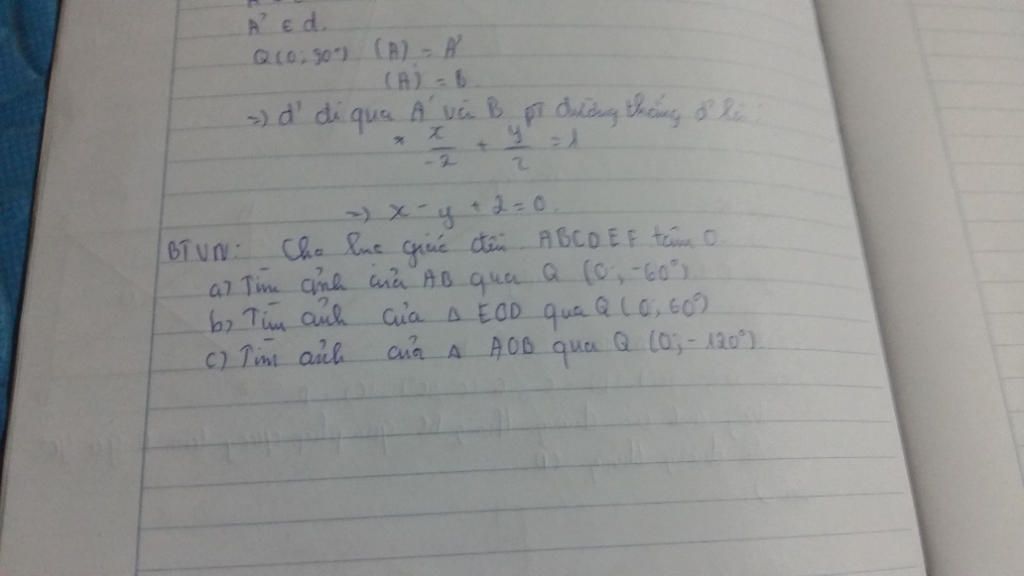 A' ∈ d.
Q(O; 90°) (A) = A'
(A) = B
=> d' đi qua A' và B pt đường thẳng d' là:
* x/-2 + y/2 = 1
=> x - y + 2 = 0.
BTVN: Cho lục giác đều ABCDEF tâm O
a) Tìm ảnh của AB qua Q (O; -60°)
b) Tìm ảnh của Δ EOD qua Q (O; 60°)
c) Tìm ảnh của Δ AOB qua Q (O; -120°)